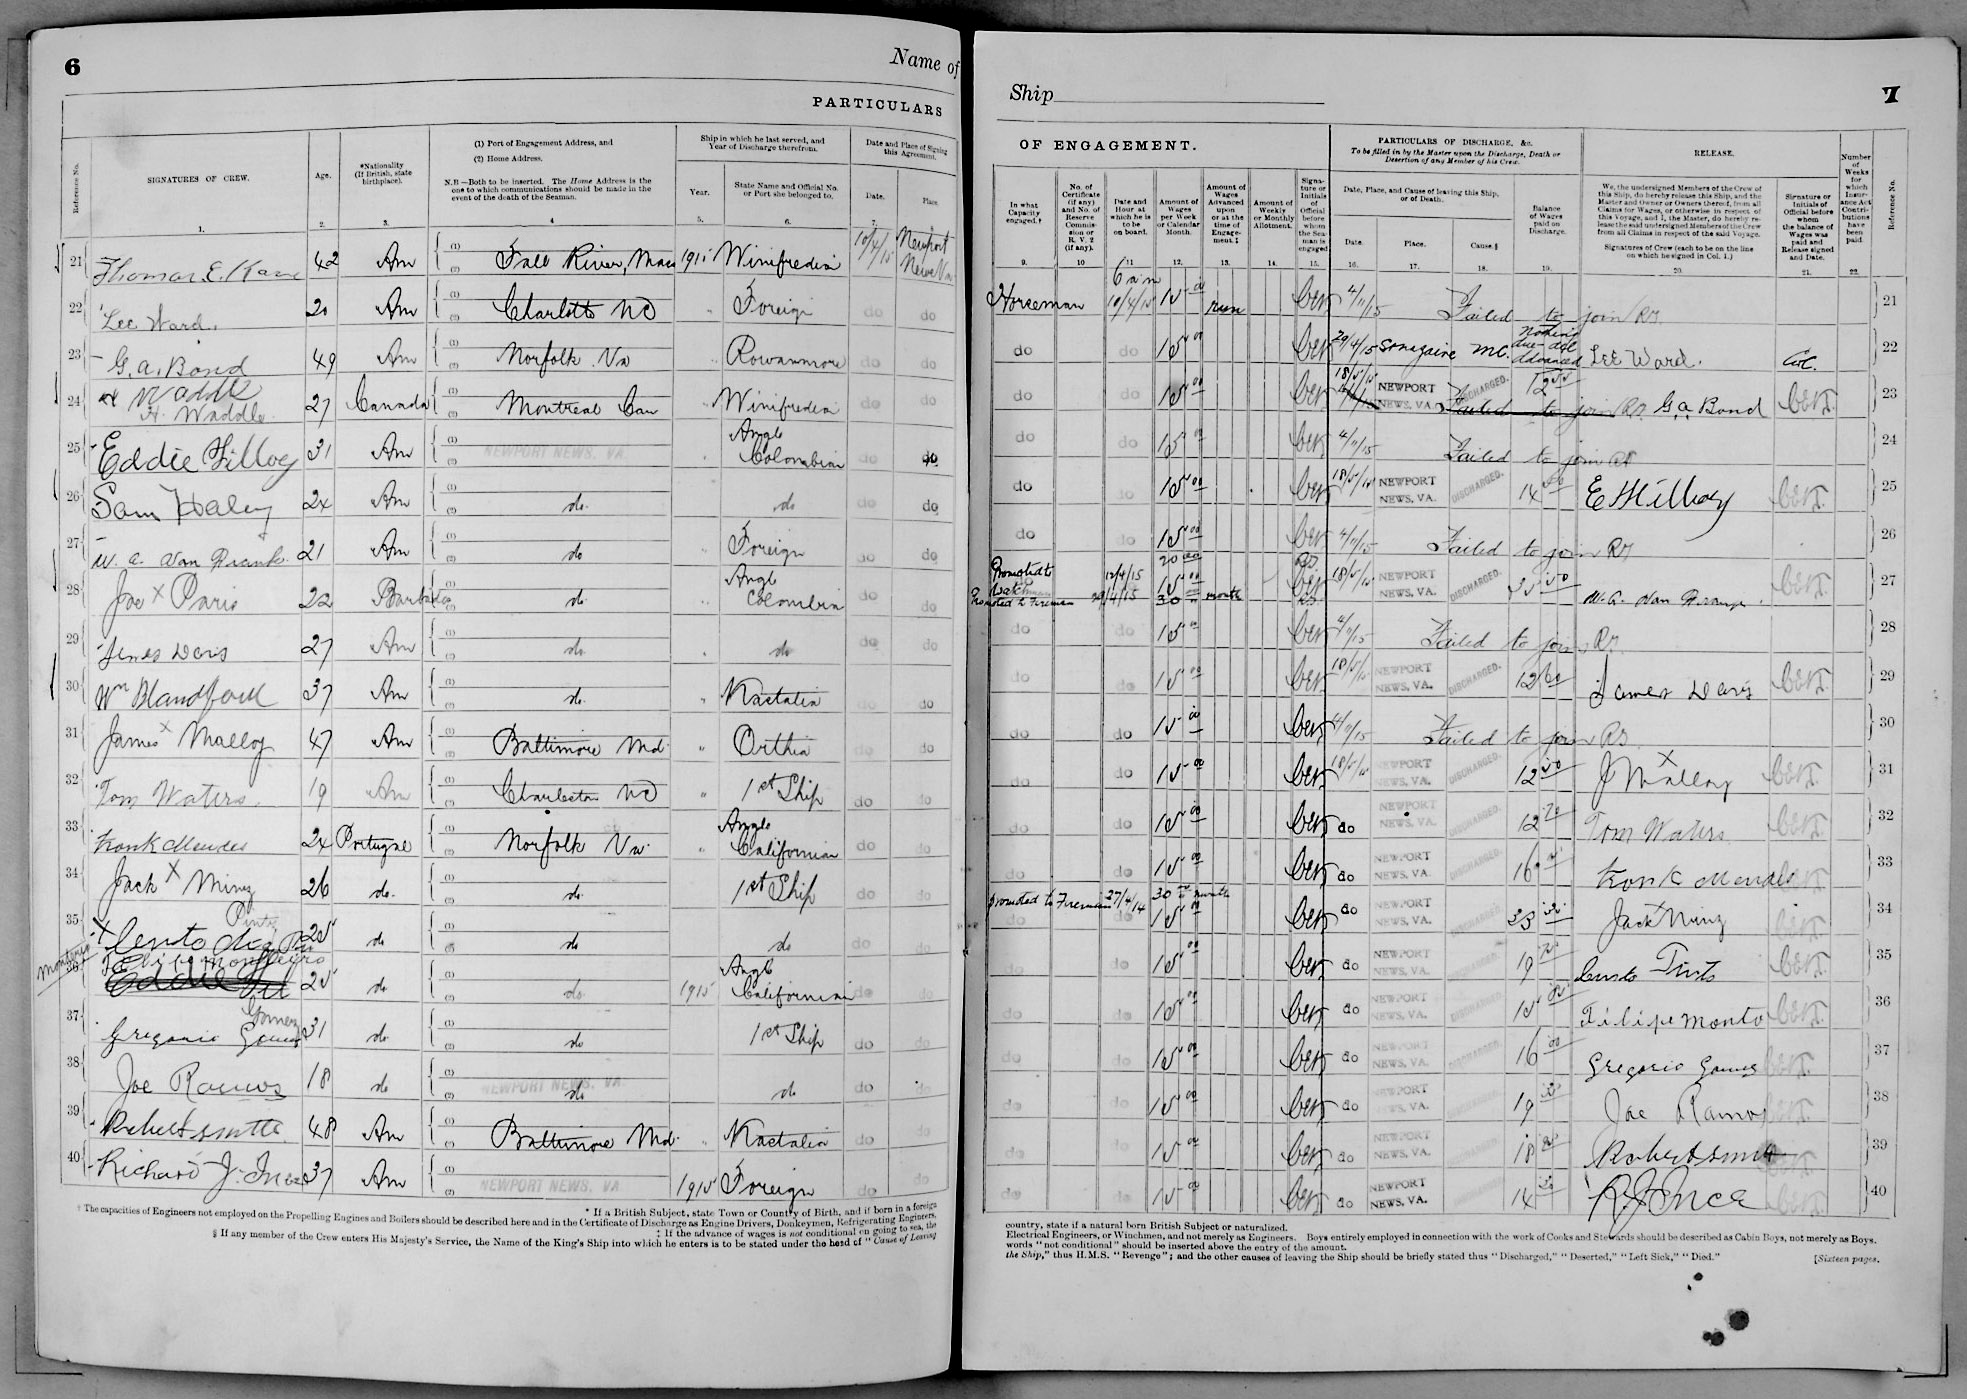 6
Name of
PARTICULARS
Reference No.
SIGNATURES OF CREW.
Age.
*Nationality
(If British, state
birthplace).
(1) Port of Engagement Address, and
(2) Home Address.
N.B.—Both to be inserted. The Home Address is the
one to which communications should be made in the
event of the death of the Seaman.
Ship in which he last served, and
Year of Discharge therefrom.
Year.
State Name and Official No.
or Port she belonged to.
Date and Place of Signing
this Agreement.
Date.
Place.
1. 2. 3. 4. 5. 6. 7.
21 Thomas E. Kane 42 Am Fall River, Mass 1915 Winifredian 10/4/15 Newport News Va
22 Lee Ward. 20 Am Charlotte NC " Foreign do do
23 G. A. Bond 49 Am Norfolk Va " Rowanmore do do
24 H Waddle
H. Waddle 27 Canada Montreal Can " Winifredian do do
25 Eddie Filloy 31 Am NEWPORT NEWS, VA. Anglo Colombian do do
26 Sam Haley 24 Am do. do. do do
27 W. A. Van Frank. 21 Am do " Foreign do do
28 Joe X Paris 22 Barbados do. " Anglo Colombian do do
29 James Davis 27 Am do. do do do
30 Wm Blandford 37 Am do. " Nastalia do do
31 James X Malloy 47 Am Baltimore Md. " Orthia do do
32 Tom Waters. 19 Am Charleston NC " 1st Ship do do
33 Frank Mendes 24 Portugal Norfolk Va. " Anglo Californian do do
34 Jack X Minz 26 do. do. 1st Ship do do
35 Cento Pinto 25 do do do do do
Monteiro
36 Felipe Monteiro 25 do do. 1915 Anglo Californian do do
37 Gregorio Gomez 31 do. do 1st Ship do do
38 Joe Ramos 18 do NEWPORT NEWS, VA. do do do do
39 Robert Smith 48 Am Baltimore Md. " Nastalia do do
40 Richard J. Ince 37 Am NEWPORT NEWS, VA. 1915 Foreign do do
* If a British Subject, state Town or Country of Birth, and if born in a foreign
† The capacities of Engineers not employed on the Propelling Engines and Boilers should be described here and in the Certificate of Discharge as Engine Drivers, Donkeymen, Refrigerating Engineers,
‡ If the advance of wages is not conditional on going to sea, the
§ If any member of the Crew enters His Majesty's Service, the Name of the King's Ship into which he enters is to be stated under the head of "Cause of Leaving
Ship
7
OF ENGAGEMENT.
PARTICULARS OF DISCHARGE, &c.
To be filled in by the Master upon the Discharge, Death or
Desertion of any Member of his Crew.
RELEASE.
In what
Capacity
engaged.†
No. of
Certificate
(if any)
and No. of
Reserve
Commis-
sion or
R. V. 2
(if any).
Date and
Hour at
which he is
to be
on board.
Amount of
Wages
per Week
or Calendar
Month.
Amount of
Wages
Advanced
upon
or at the
time of
Engage-
ment.‡
Amount of
Weekly
or Monthly
Allotment.
Signa-
ture or
Initials
of
Official
before
whom
the Sea-
man is
engaged
Date, Place, and Cause of leaving this Ship,
or of Death.
Date.
Place.
Cause.§
Balance
of Wages
paid on
Discharge.
We, the undersigned Members of the Crew of
this Ship, do hereby release this Ship, and the
Master and Owner or Owners thereof, from all
Claims for Wages, or otherwise in respect of
this Voyage, and I, the Master, do hereby re-
lease the said undersigned Members of the Crew
from all Claims in respect of the said Voyage.
Signatures of Crew (each to be on the line
on which he signed in Col. 1.)
Signature or
Initials of
Official before
whom
the balance of
Wages was
paid and
Release signed
and Date.
Number
of
Weeks
for
which
Insur-
ance Act
Contri-
butions
have
been
paid
Reference No.
9. 10 11 12. 13. 14. 15. 16. 17. 18. 19. 20. 21. 22.
Horseman 6 am 10/4/15 15.00 run 4/11/15 Failed to join RS. 21
do do 15.00 20/4/15 Nothing due Advanced Lee Ward. 22
do do 15.00 18/5/15 NEWPORT NEWS, VA. DISCHARGED. 12 Failed to join RS G. A. Bond 23
do do 15.00 4/11/15 Failed to join 24
do do 15.00 18/5/15 NEWPORT NEWS, VA. DISCHARGED. 14 25
do do 15.00 4/11/15 Failed to join RS 26
Promoted to Watchman 12/4/15 20.00
do 15.00 18/5/15 NEWPORT NEWS, VA. DISCHARGED. 35 W. A. Van Frank. 27
Promoted to Fireman 30 month
do do 15.00 4/11/15 Failed to join RS 28
do do 15.00 18/5/15 NEWPORT NEWS, VA. DISCHARGED. 12 60 James Davis 29
do do 15.00 4/11/15 Failed to join RS. 30
do do 15.00 18/5/15 NEWPORT NEWS, VA. DISCHARGED. 12 50 J X Malloy 31
do do 15.00 do NEWPORT NEWS, VA. DISCHARGED. 12 70 Tom Waters 32
do do 15.00 do NEWPORT NEWS, VA. DISCHARGED. 16 Frank Mendes 33
promoted to Fireman 27/4/14 30 month
do do 15.00 do NEWPORT NEWS, VA. DISCHARGED. 33 Jack X Minz 34
do do 15.00 do NEWPORT NEWS, VA. DISCHARGED. 19 Cento Pinto 35
do do 15.00 do NEWPORT NEWS, VA. DISCHARGED. 15 Filipe Monto 36
do do 15.00 do NEWPORT NEWS, VA. DISCHARGED. 16 00 Gregorio Gomez 37
do do 15.00 do NEWPORT NEWS, VA. DISCHARGED. 19 Joe Ramos 38
do do 15.00 do NEWPORT NEWS, VA. DISCHARGED. 18 Robert Smith 39
do do 15.00 do NEWPORT NEWS, VA. DISCHARGED. 14 R J Ince 40
country, state if a natural born British Subject or naturalized.
Electrical Engineers, or Winchmen, and not merely as Engineers. Boys entirely employed in connection with the work of Cooks and Stewards should be described as Cabin Boys, not merely as Boys.
words "not conditional" should be inserted above the entry of the amount.
the Ship," thus H.M.S. "Revenge"; and the other causes of leaving the Ship should be briefly stated thus "Discharged," "Deserted," "Left Sick," "Died."
[Sixteen pages.